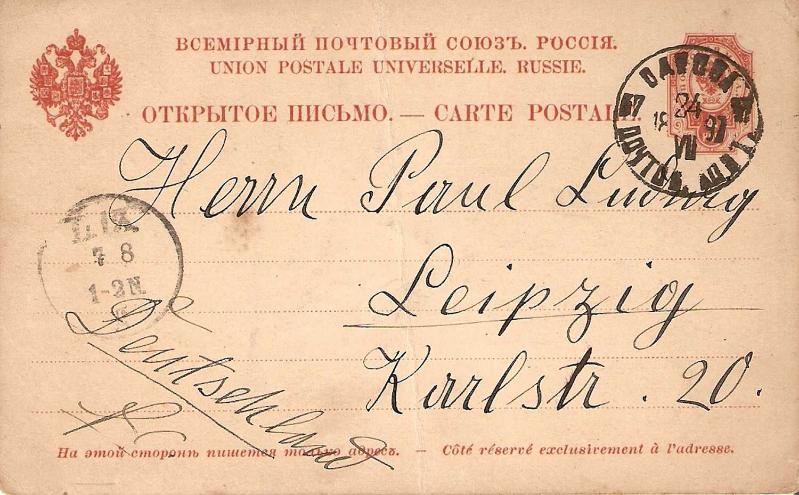 ВСЕМІРНЫЙ ПОЧТОВЫЙ СОЮЗЪ. РОССІЯ.
UNION POSTALE UNIVERSELLE. RUSSIE.
ОТКРЫТОЕ ПИСЬМО. — CARTE POSTALE.
24
18 97
VII
7 8
1-2N.
Herrn Paul Ludwig
Leipzig
Karlstr. 20.
Deutschland
На этой сторонѣ пишется только адресъ. — Côté réservé exclusivement à l'adresse.